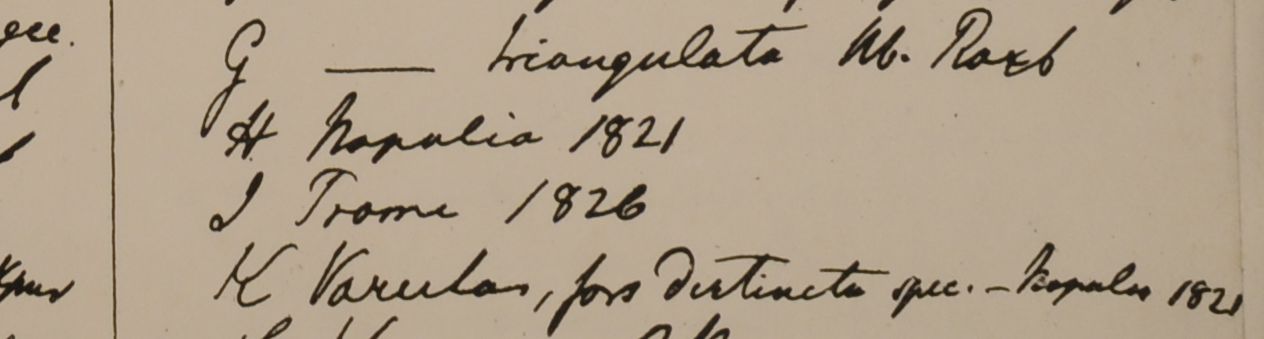 G — triangulata Hb. Roxb
H Napalia 1821
I Prome 1826
K Varietas, fors distincta spec. – Napalia 1821